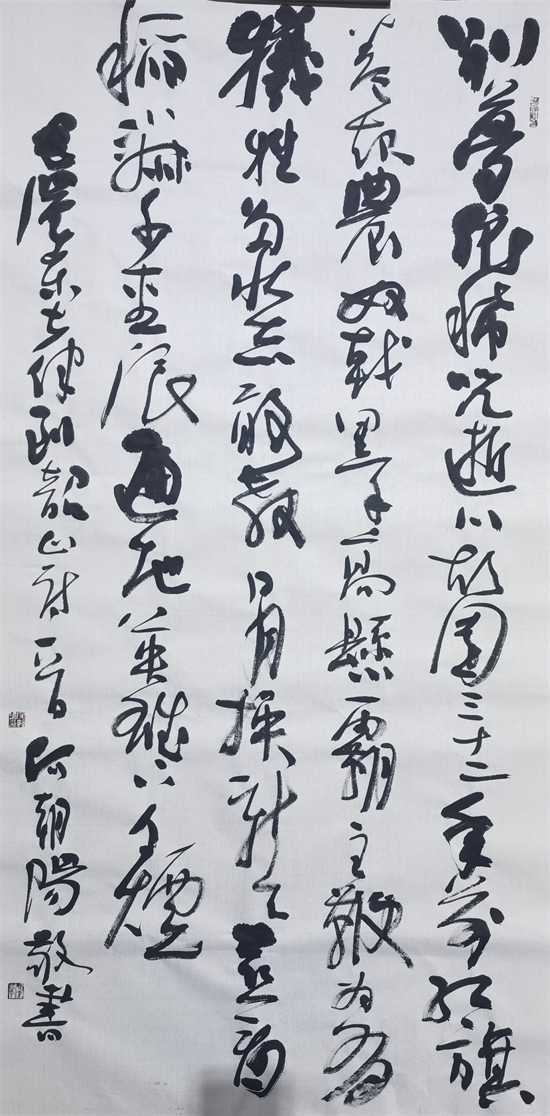 别夢依稀咒逝川故園三十二年前红旗
卷起農奴戟黑手高懸霸主鞭为有
犧牲多壮志敢教日月换新天喜看
稻菽千重浪遍地英雄下夕煙
毛澤东七律到韶山诗一首 何朝陽敬書